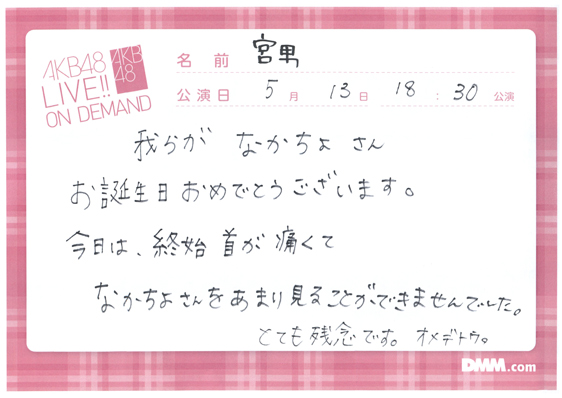 AKB48
LIVE!!
ON DEMAND
AKB
48
名前 宮男
公演日 5月13日 18:30公演
我らが なかちょさん
お誕生日おめでとうございます。
今日は、終始首が痛くて
なかちょさんをあまり見ることができませんでした。
とても残念です。オメデトウ。
DMM.com